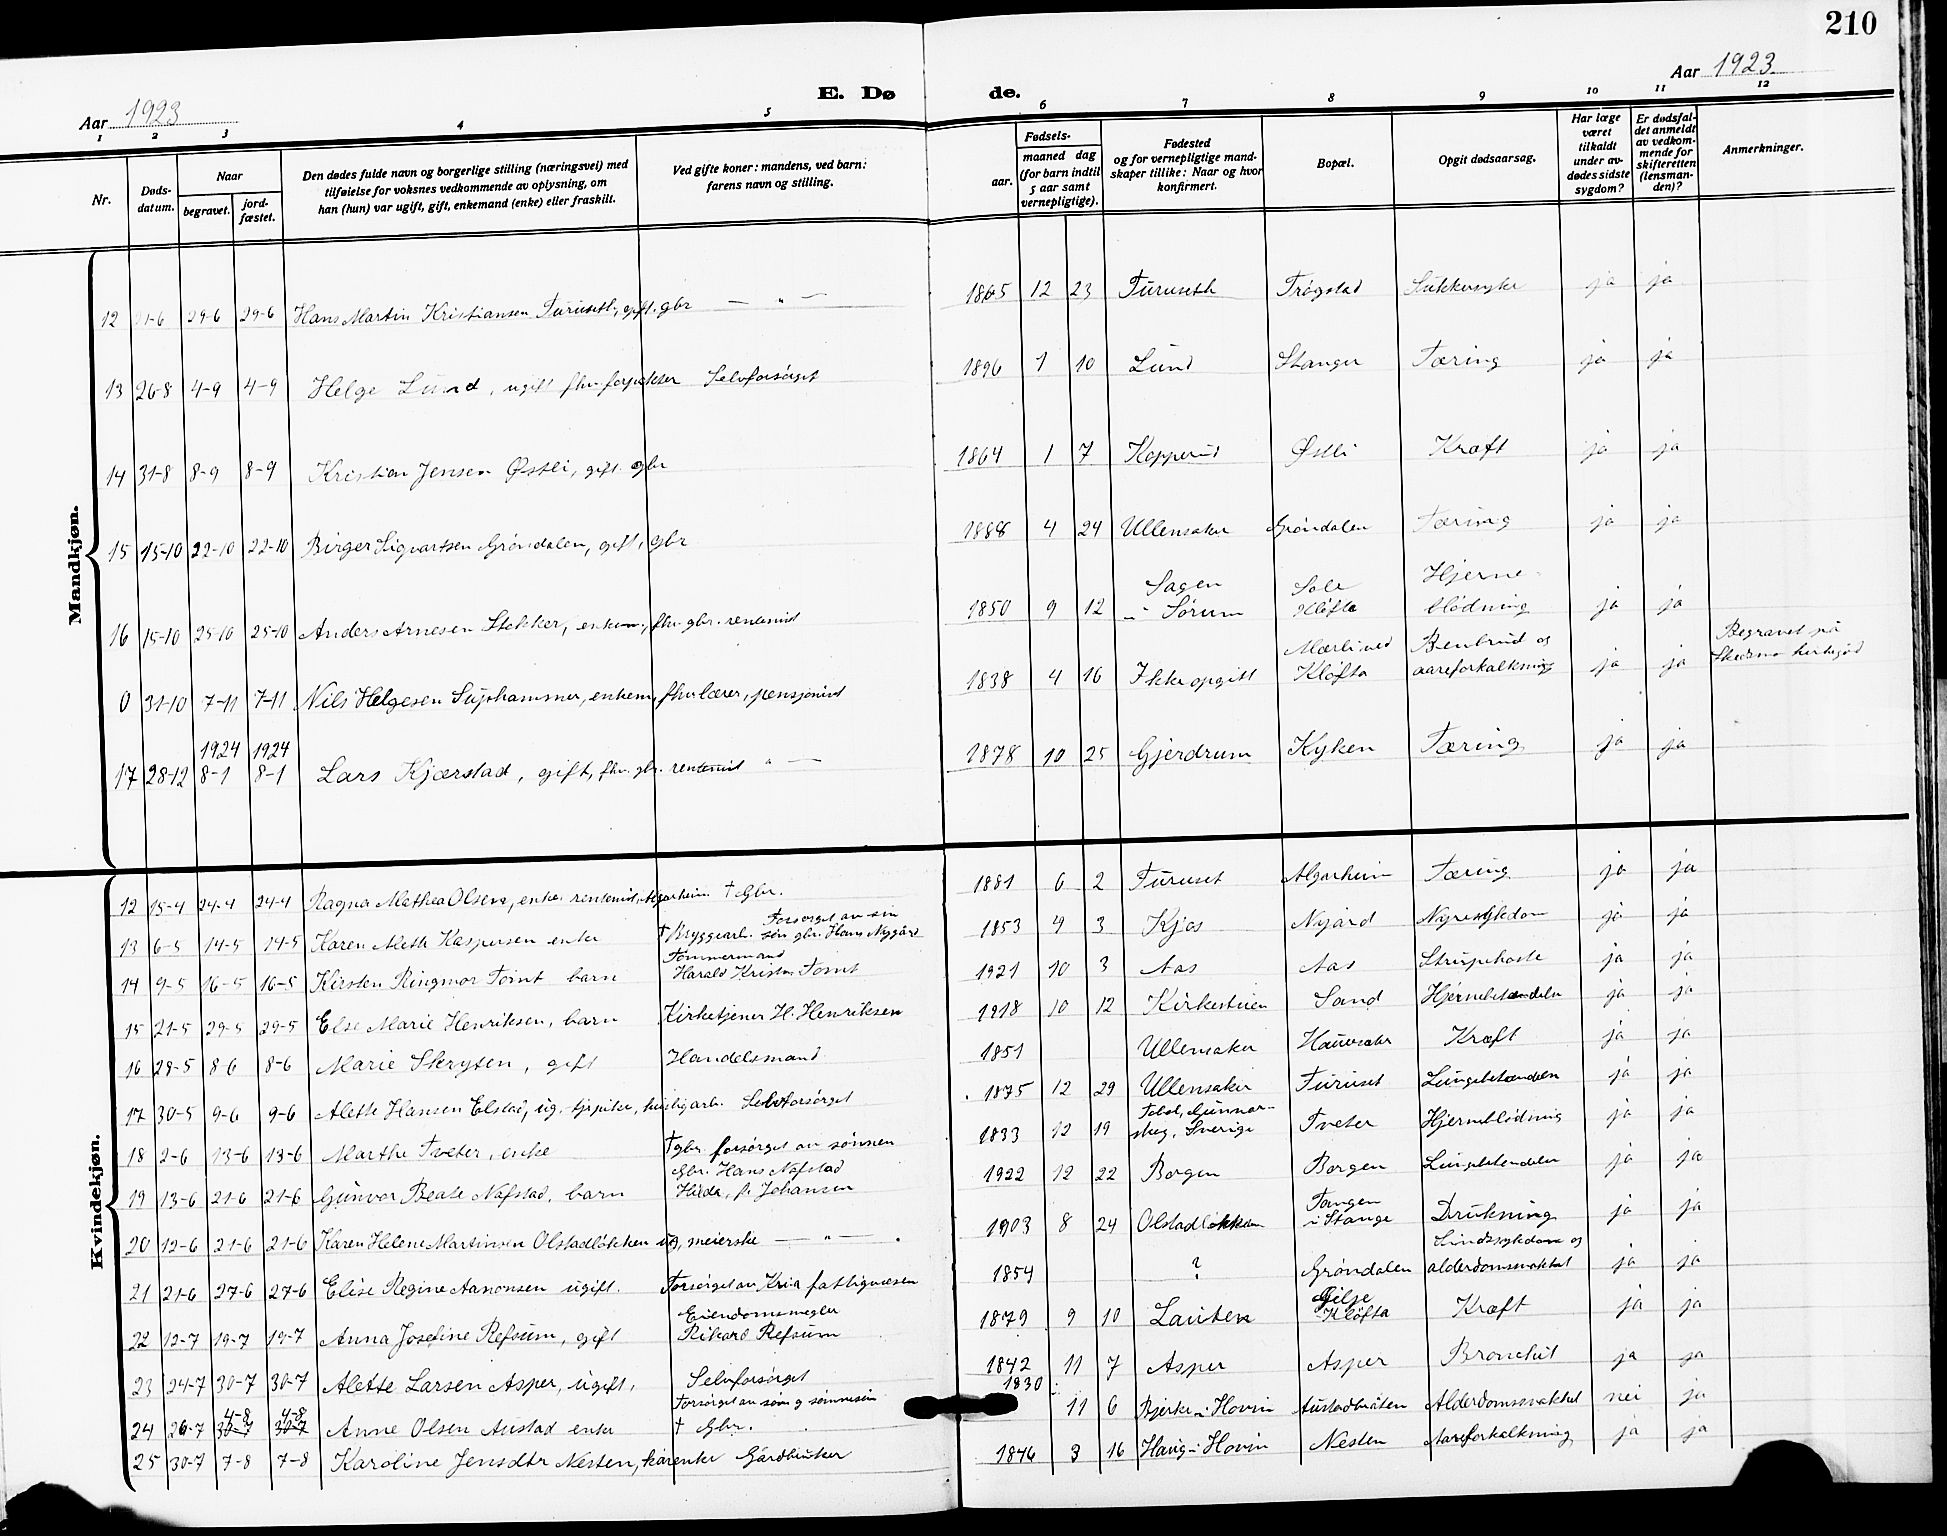 210
Aar 1923
E. Døde.
Aar 1923.
1 2 3 4 5 6 7 8 9 10 11 12
Nr.
Døds-datum.
Naar
begravet.
jord-fæstet.
Den dødes fulde navn og borgerlige stilling (næringsvei) med
tilføielse for voksnes vedkommende av oplysning, om
han (hun) var ugift, gift, enkemand (enke) eller fraskilt.
Ved gifte koner: mandens, ved barn:
farens navn og stilling.
Fødsels-
aar.
maaned dag
(for barn indtil
5 aar samt
vernepligtige).
Fødested
og for vernepligtige mand-
skaper tillike: Naar og hvor
konfirmert.
Bopæl.
Opgit dødsaarsag.
Har læge
været
tilkaldt
under av-
dødes sidste
sygdom?
Er dødsfal-
det anmeldt
av vedkom-
mende for
skifteretten
(lensman-
den)?
Anmerkninger.
Mandkjøn.
12 21-6 29-6 29-6 Hans Martin Kristiansen Furuseth, gift. gbr — " — 1865 12 23 Furuseth Trøgstad Sukkersyke ja ja
13 26-8 4-9 4-9 Helge Lund, ugift fhv. forpakter Selvforsørget 1896 1 10 Lund Stanger Tæring ja ja
14 31-8 8-9 8-9 Kristian Jensen Østli, gift. gbr 1864 1 7 Kopperud Østli Kræft ja ja
15 15-10 22-10 22-10 Birger Sigvartsen Grøndalen, gift, gbr 1888 4 24 Ullensaker Grøndalen Tæring ja ja
16 15-10 25-10 25-10 Anders Arnesen Stokker, enkem, fhv. gbr. rentenist 1850 9 12 Sagen i Sørum Sole Kløfta Hjerneblødning ja ja
0 31-10 7-11 7-11 Nils Helgesen Suphammer, enkem, fhv lærer, pensjonist 1838 4 16 Ikke opgitt Mærli ved Kløfta Benbrud og aareforkalkning ja ja Begravet på Skedsmo kirkegård
17 28-12 1924 8-1 1924 8-1 Lars Kjærstad, gift, fhv. gbr. rentenist " — 1878 10 25 Gjerdrum Kyken Tæring ja ja
Kvindekjøn.
12 15-4 24-4 24-4 Ragna Mathea Olsen, enke rentenist, Algarheim † Gbr. 1881 6 2 Furuset Algarheim Tæring ja ja
13 6-5 14-5 14-5 Karen Aleth Kaspersen enke † Bryggearb. Forsørget av sin søn gbr. Hans Nygård 1853 4 3 Kjos Nyjård Nyresykdom ja ja
14 9-5 16-5 16-5 Kirsten Ringmor Tømt barn Tømmermand Harald Kristin Tømt 1921 10 3 Aas Aas Strupehoste ja ja
15 21-5 29-5 29-5 Else Marie Henriksen, barn Kirketjener H. Henriksen 1918 10 12 Kirkestuen Sand Hjernebetændelse ja ja
16 28-5 8-6 8-6 Marie Skryten, gift Handelsmand 1851 Ullensaker Hauersæter Kræft ja ja
17 30-5 9-6 9-6 Alette Hansen Elstad, ug. tjpike, husligarb. Selvforsørget 1875 12 29 Ullensaker Furuset Lungebetændelse ja ja
18 2-6 13-6 13-6 Marthe Tveter, enke † gbr. forsørget av sønnen 1833 12 19 Gunnarskog, Sverige Tveter Hjerneblødning ja ja
19 13-6 21-6 21-6 Gunvor Beate Nafstad, barn Gbr. Hans Nafstad Hilda, f. Johansen 1922 12 22 Borgen Borgen Lungebetændelse ja ja
20 12-6 21-6 21-6 Karen Helene Martinsen Olstadløkken ug, meierske — " — 1903 8 24 Olstadløkken Tangen i Stange Drukning ja ja
21 21-6 27-6 27-6 Elise Regine Aanonsen ugift. Forsørget av Kr.ia fattigvæsen 1854 ? Grøndalen Sindssykdom og alderdomssvakhet ja ja
22 12-7 19-7 19-7 Anna Josefine Refsum, gift Eiendomsmegler Rikard Refsum 1879 9 10 Lauten Gilje Kløfta Kræft ja ja
23 24-7 30-7 30-7 Alette Larsen Asper, ugift, Selvforsørget 1842 11 7 Asper Asper Bronchit ja ja
24 26-7 4-8 30-7 4-8 30-7 Anne Olsen Austad enke Forsørget av søn og sønnesøn † Gbr. 1830 11 6 Bjerke i Hovin Austadbråten Alderdomssvakhet nei ja
25 30-7 7-8 7-8 Karoline Jensdtr Nesten, kårenke Gårdbruker 1846 3 16 Haug i Hovin Nesten Aareforkalkning ja ja